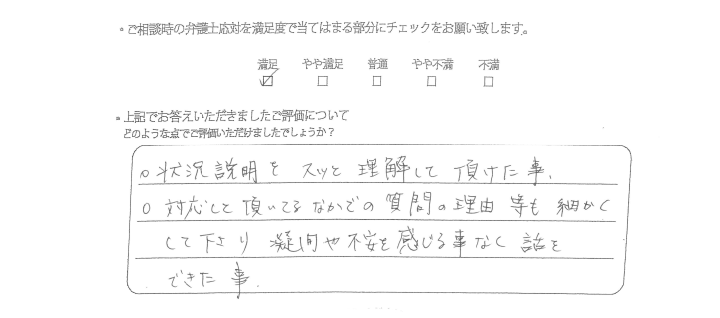 ・ご相談時の弁護士応対を満足度で当てはまる部分にチェックをお願い致します。
満足 やや満足 普通 やや不満 不満
☑ □ □ □ □
・上記でお答えいただきましたご評価について
どのような点でご評価いただけましたでしょうか?
○状況説明を スッと 理解して 頂けた事、
○対応して頂いてるなかでの質問の理由 等も 細かく
して下さり 凝問や不安を感じる事なく 話を
できた 事.